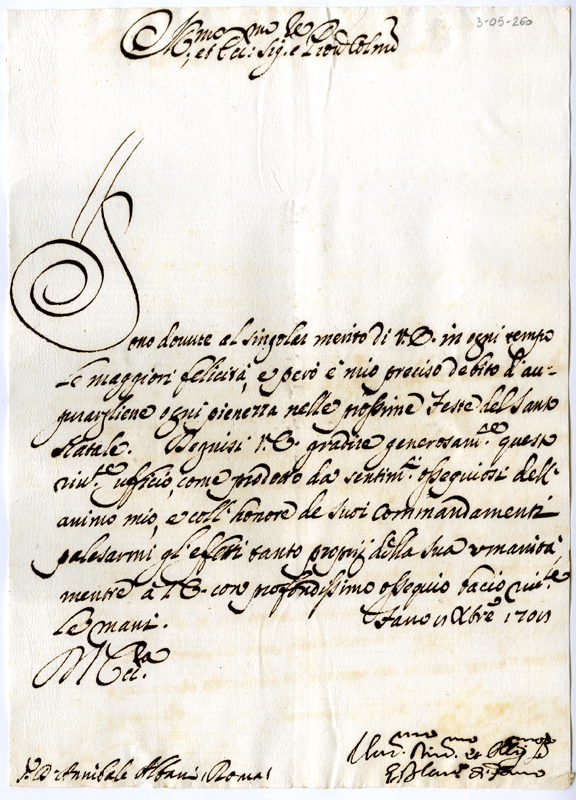 3-05-260
Ill.mo et Ecc. Sig.e Pron Colmo
Sono dovute al singolar merito di V.E. in ogni tempo
le maggiori felicità, e però è mio preciso debito d'au-
gurargliene ogni pienezza nelle prossime Feste del Santo
Natale. Degnisi V.E. gradire generosam.te queste
riv.te ufficio, come prodotto da sentim.ti ossequiosi dell'
animo mio, e coll'honore de suoi Commandamenti
palesarmi gl'effetti tanto proprij della sua umanità
mentre a V.E. con profondissimo ossequio bacio riv.te
le mani. Fano 11 Xbre 1701
V. Ecc.la
D. Annibale Albani (Roma)
di Fano